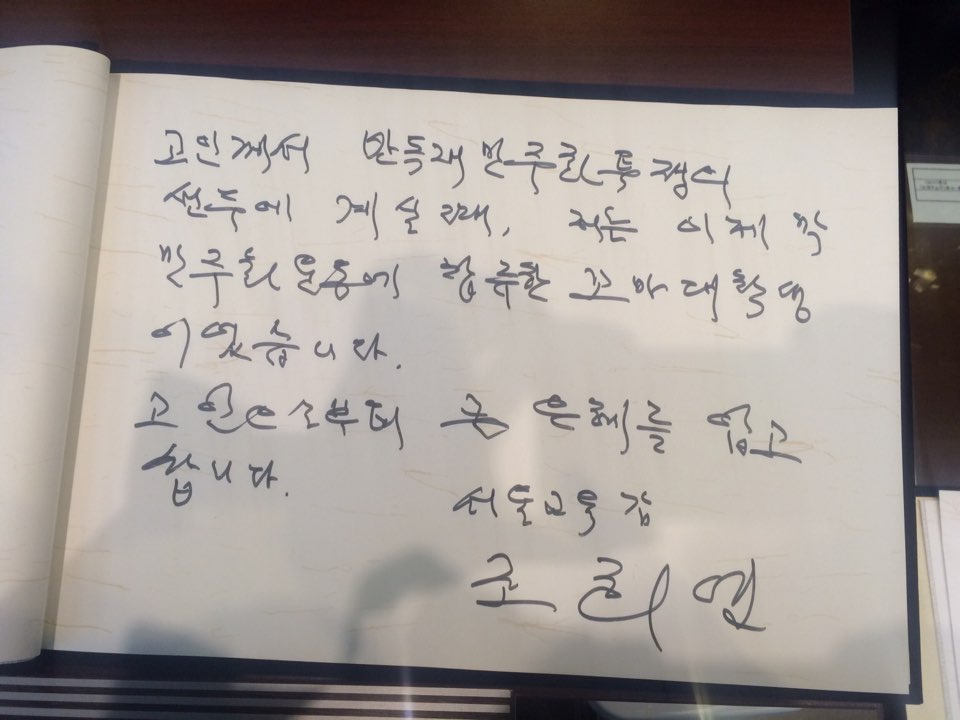 고인께서 반독재민주화투쟁의
선두에 계실 때, 저는 이제 막
민주화운동에 합류한 꼬마대학생
이었습니다.
고인으로부터 큰 은혜를 입고
삽니다.
서울교육감
조희연